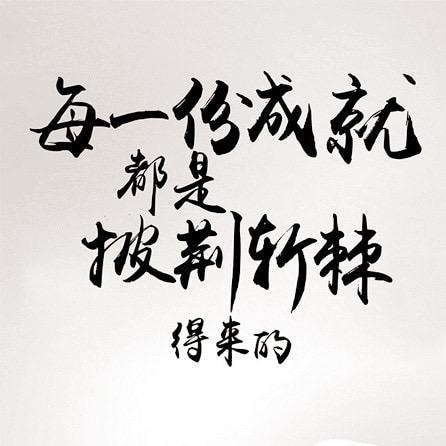 每一份成就
都是
披荆斩棘
得来的